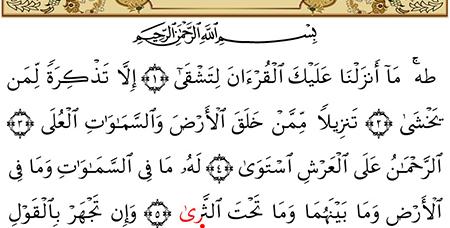 بِسْمِ ٱللَّهِ ٱلرَّحْمَٰنِ ٱلرَّحِيمِ
طه ۚ مَآ أَنزَلْنَا عَلَيْكَ ٱلْقُرْءَانَ لِتَشْقَىٰٓ ﴿١﴾ إِلَّا تَذْكِرَةً لِّمَن
يَخْشَىٰ ﴿٢﴾ تَنزِيلًا مِّمَّنْ خَلَقَ ٱلْأَرْضَ وَٱلسَّمَٰوَٰتِ ٱلْعُلَى ﴿٣﴾
ٱلرَّحْمَٰنُ عَلَى ٱلْعَرْشِ ٱسْتَوَىٰ ﴿٤﴾ لَهُۥ مَا فِى ٱلسَّمَٰوَٰتِ وَمَا فِى
ٱلْأَرْضِ وَمَا بَيْنَهُمَا وَمَا تَحْتَ ٱلثَّرِىٰ ﴿٥﴾ وَإِن تَجْهَرْ بِٱلْقَوْلِ